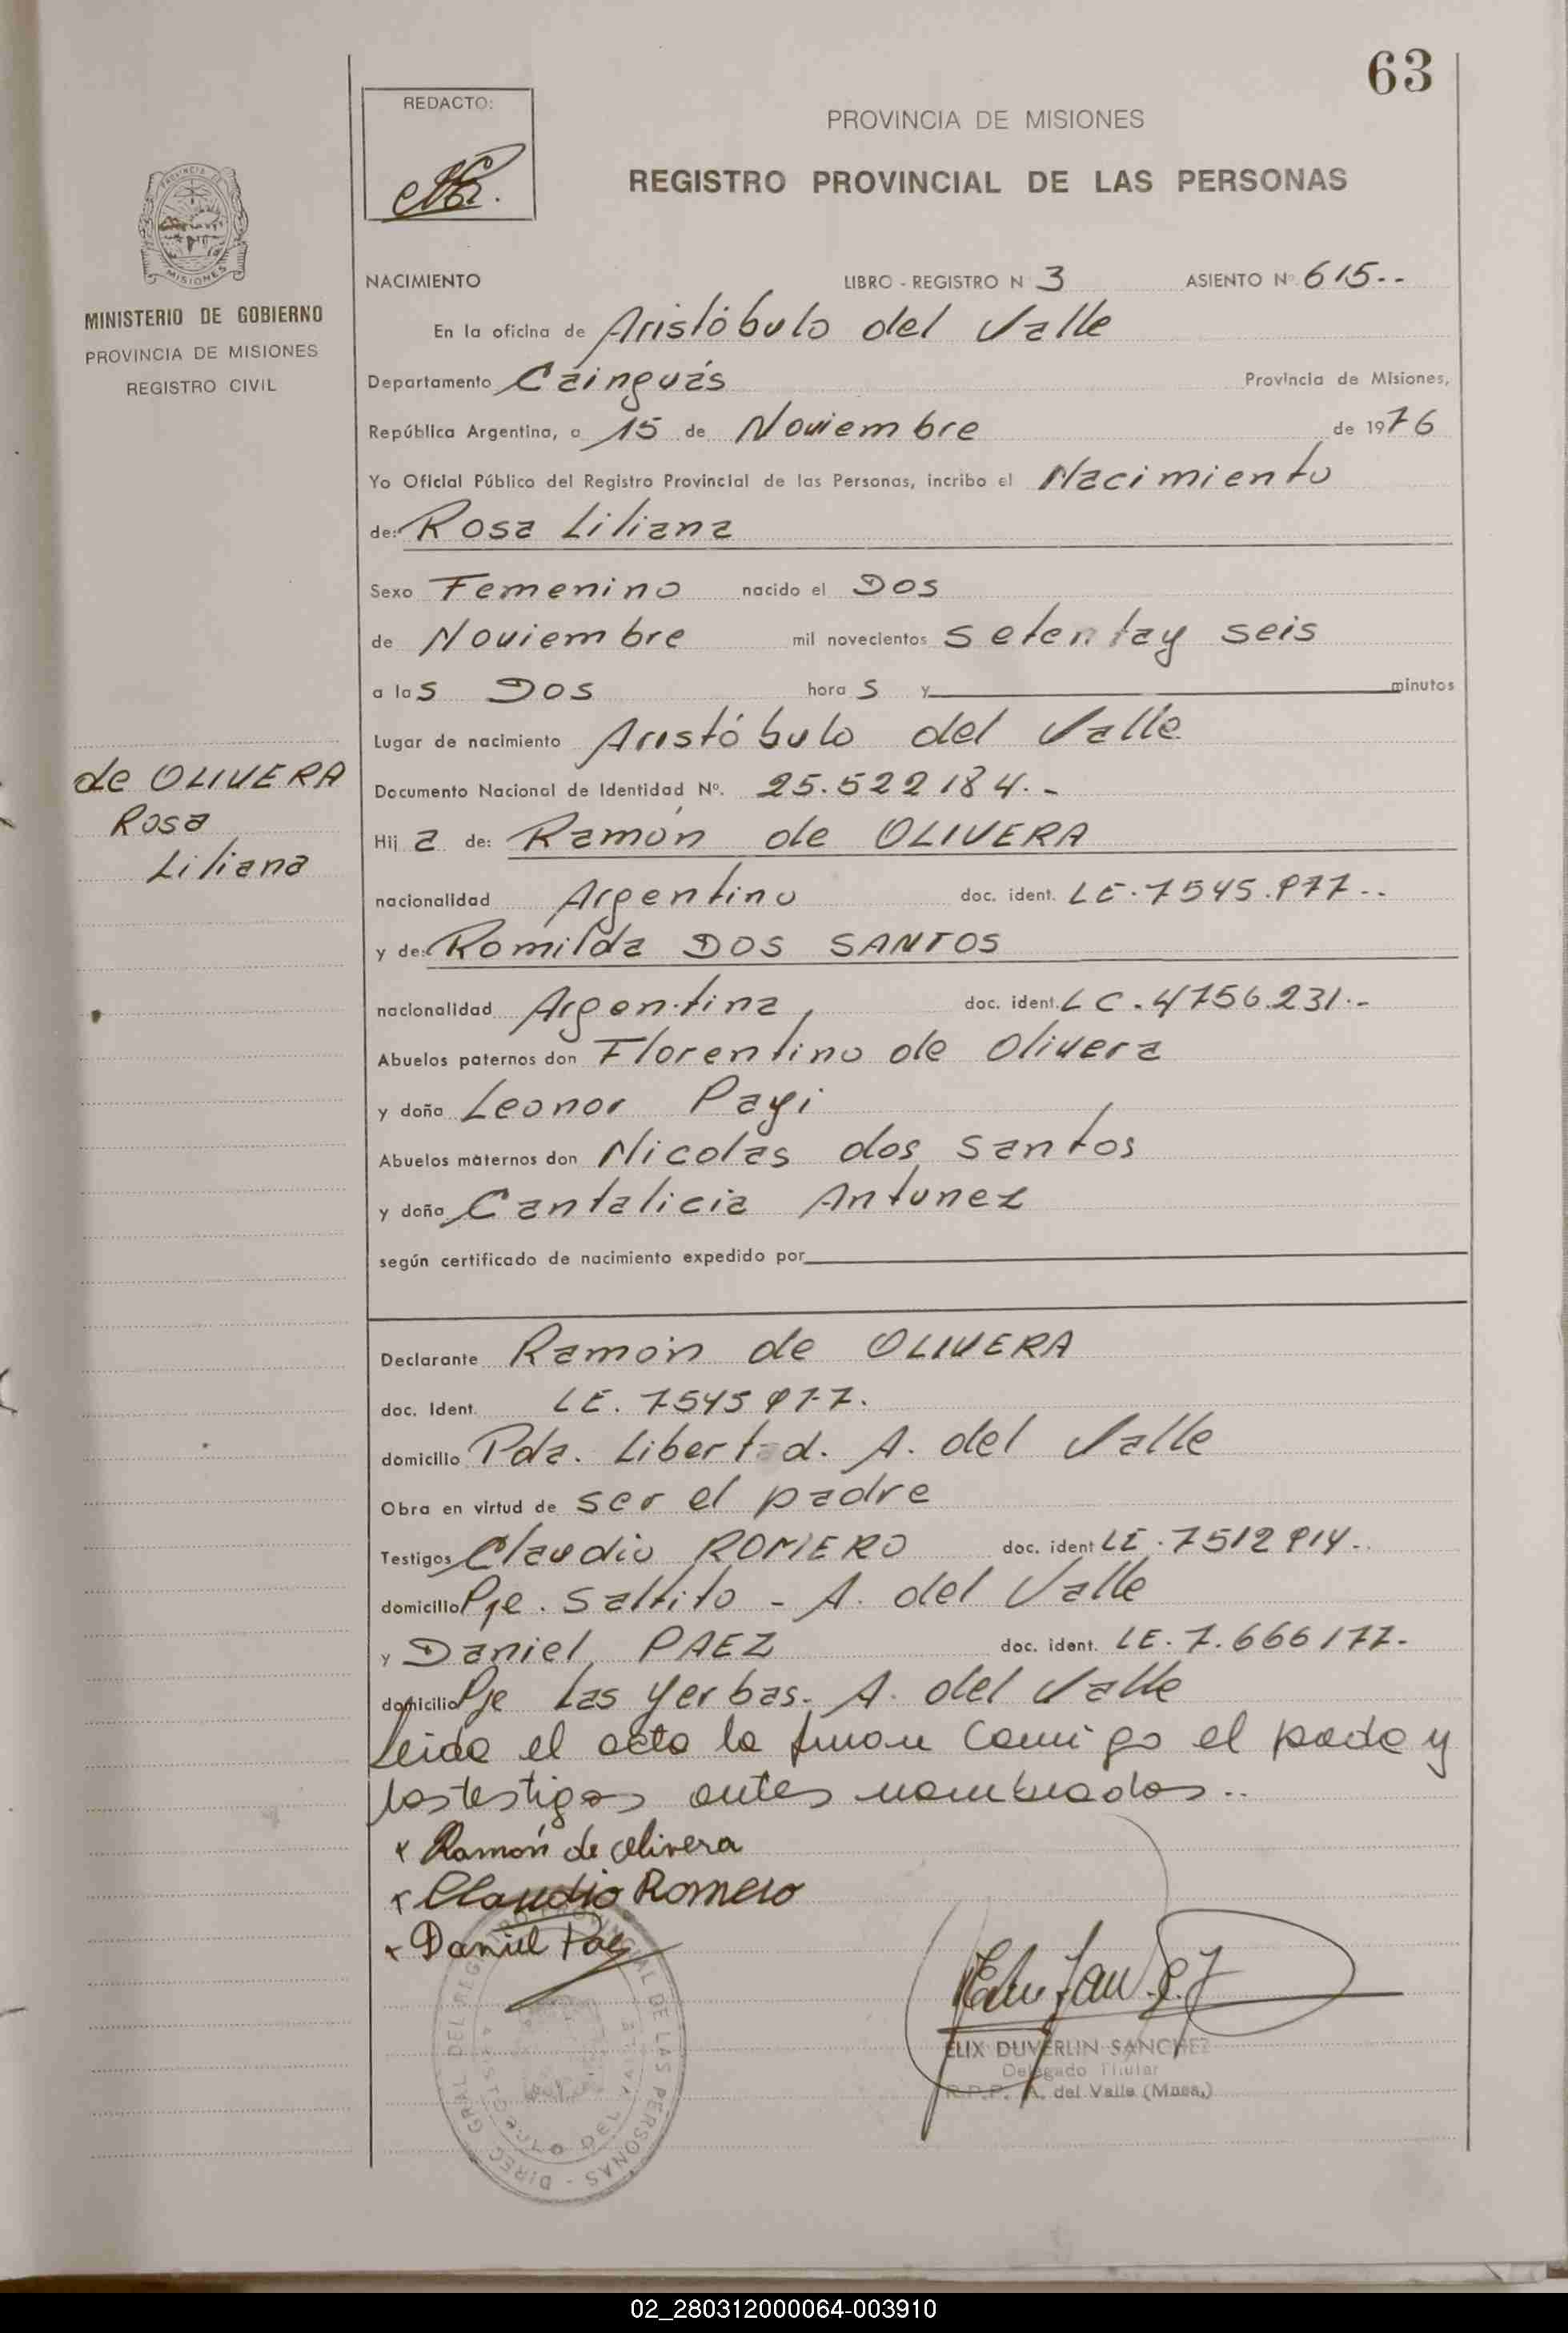 63
REDACTO:
PROVINCIA DE MISIONES
REGISTRO PROVINCIAL DE LAS PERSONAS
MISIONES
MINISTERIO DE GOBIERNO
PROVINCIA DE MISIONES
REGISTRO CIVIL
NACIMIENTO LIBRO - REGISTRO N 3 ASIENTO Nº 615--
En la oficina de Aristóbulo del Valle
Departamento Cainguás Provincia de Misiones,
República Argentina, a 15 de Noviembre de 1976
Yo Oficial Público del Registro Provincial de las Personas, incribo el Nacimiento
de: Rosa Liliana
Sexo Femenino nacido el Dos
de Noviembre mil novecientos setentay seis
a las Dos horas y minutos
Lugar de nacimiento Aristóbulo del Valle
de OLIVERA
Rosa
Liliana
Documento Nacional de Identidad Nº. 25.522184.-
Hija de: Ramón de OLIVERA
nacionalidad Argentino doc. ident. LE.7545.977--
y de: Romilda DOS SANTOS
nacionalidad Argentina, doc. ident. LC.4756.231.-
Abuelos paternos don Florentino de Olivera
y doña Leonor Payi
Abuelos maternos don Nicolás dos Santos
y doña Cantalicia Antunez
según certificado de nacimiento expedido por
Declarante Ramón de OLIVERA
doc. Ident. LE. 7545977.
domicilio Pda. Libertad. A. del Valle
Obra en virtud de ser el padre
Testigos Claudio ROMERO doc. ident LE.7512914..
domicilio Pje. Saltito - A. del Valle
y Daniel PAEZ doc. ident. LE.7.666177-
domicilio Pje Las Yerbas. A. del Valle
Leida el acta la firman conmigo el padre y
los testigos antes nombrados..
x Ramón de Olivera
x Claudio Romero
x Daniel Paez
DIREC. GRAL DEL REGISTRO PROVINCIAL DE LAS PERSONAS
ELIX DUVERLIN SANCHEZ
Delegado Titular
R.P.P. A. del Valle (Mnes.)
02_280312000064-003910